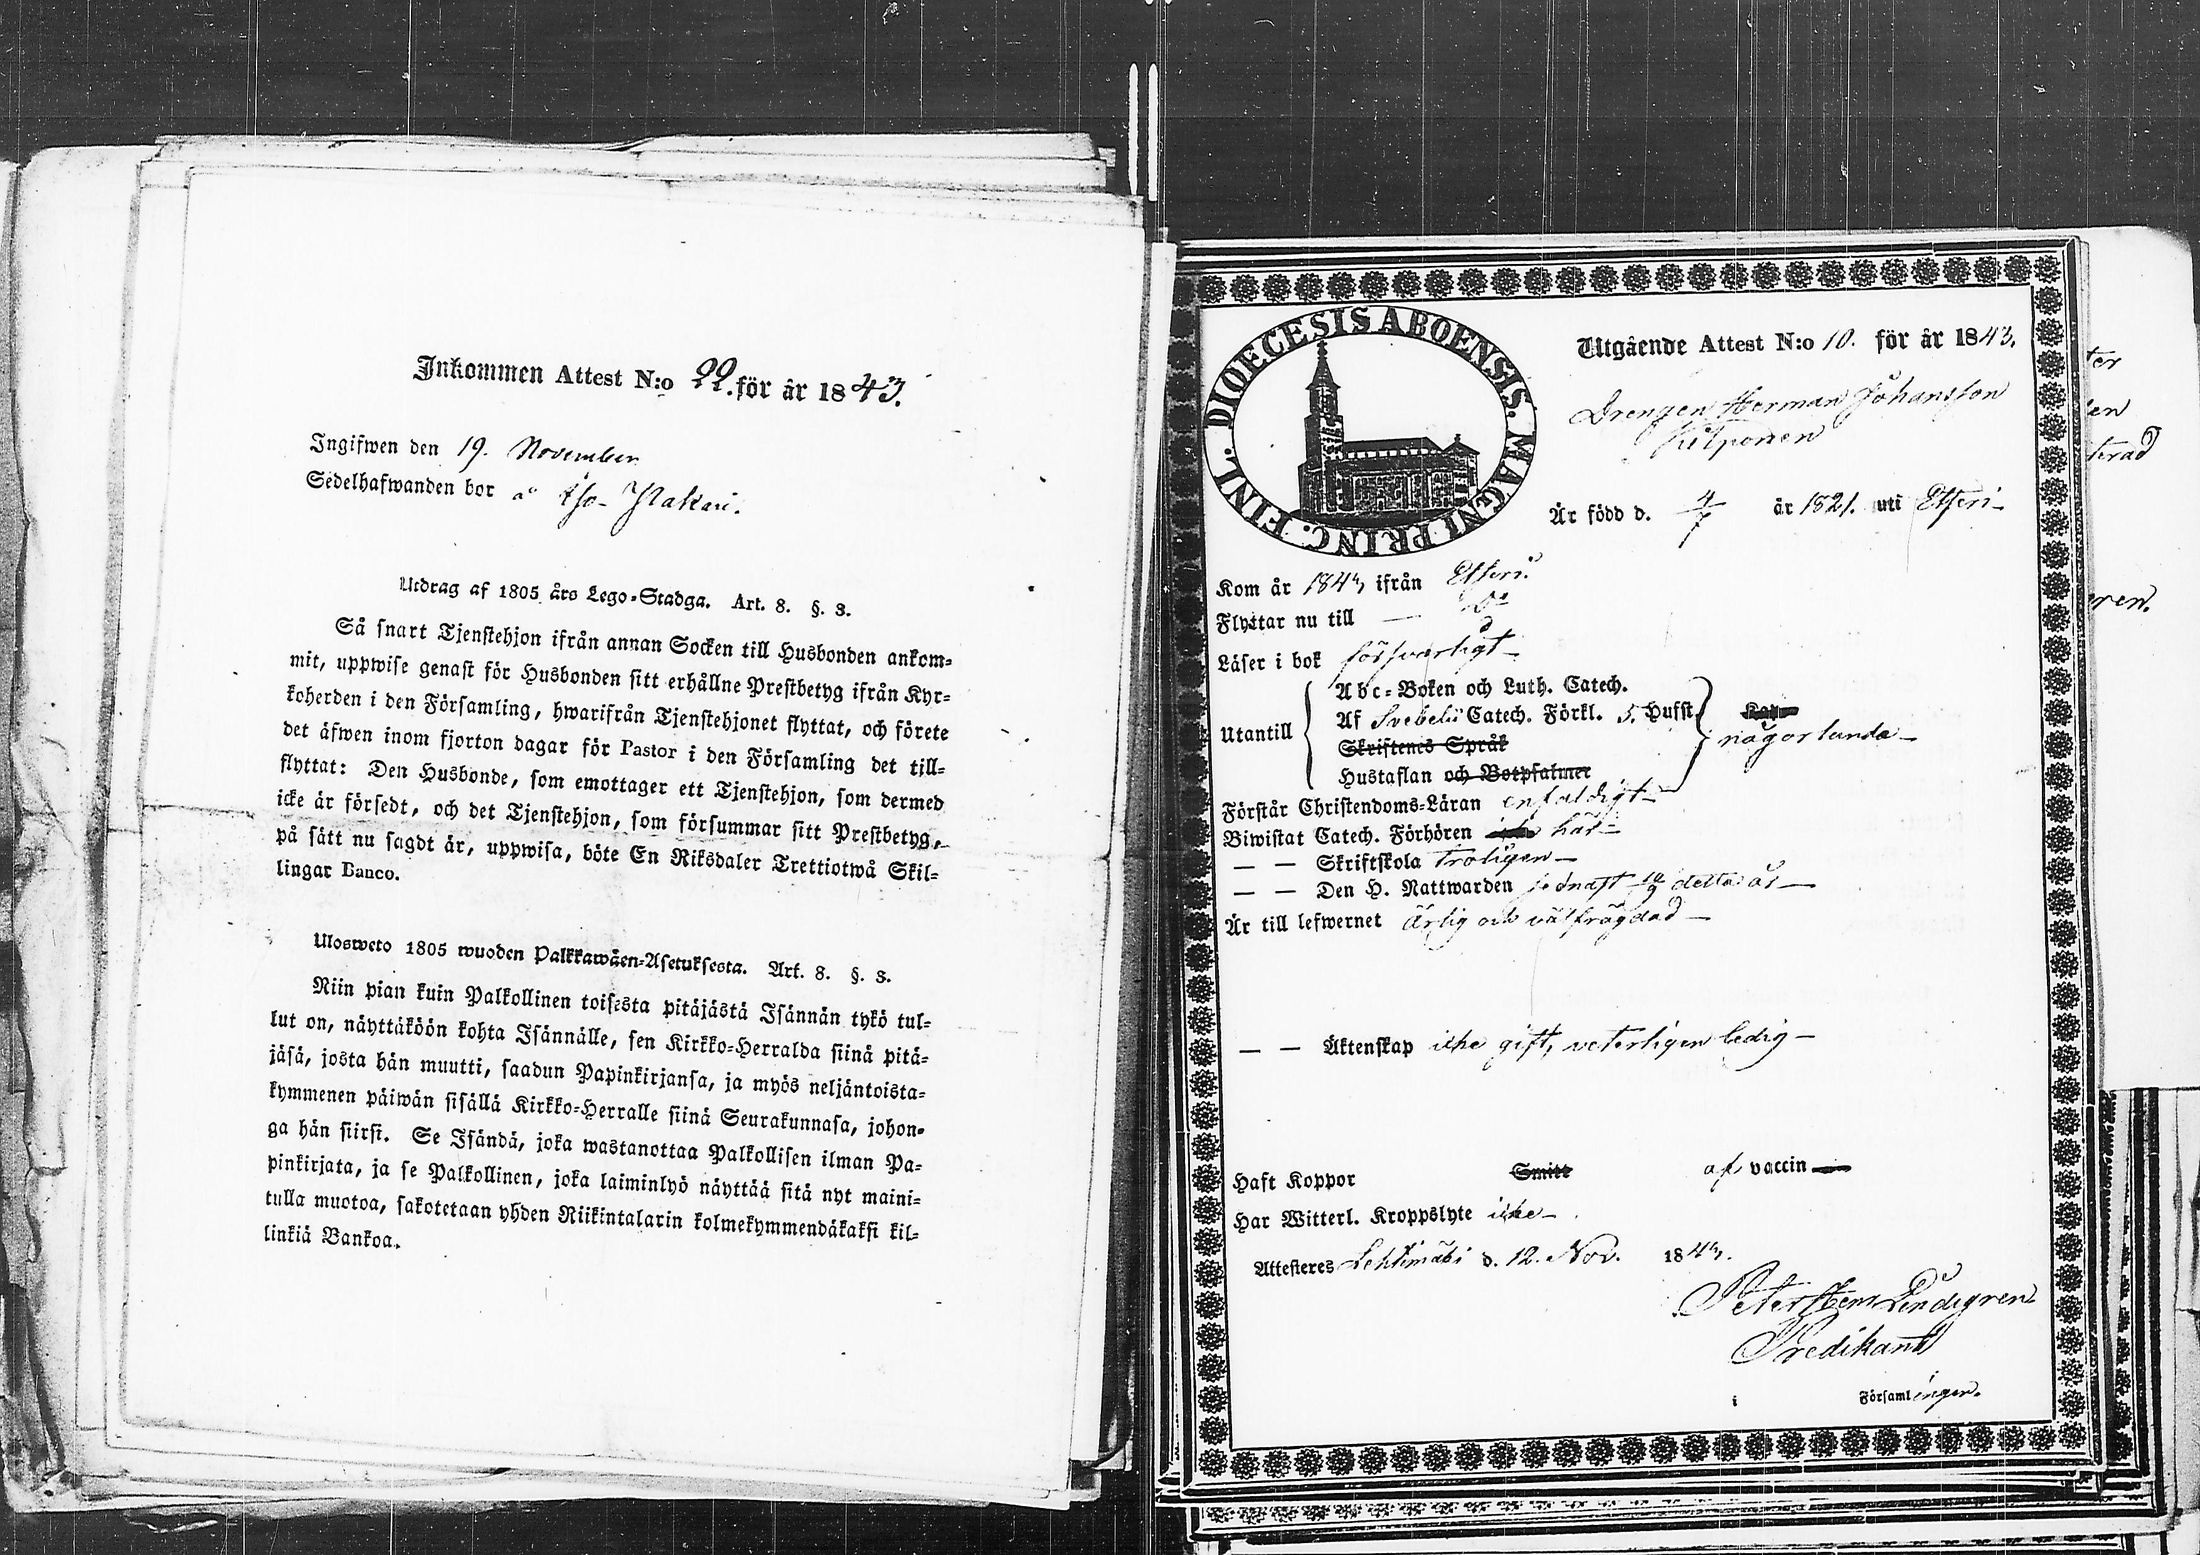 Inkommen Attest N:o 22. för år 1843.
Ingifwen den 19. November
Sedelhafwanden bor å Iso-
Utdrag af 1805 års Lego-Stadga. Art. 8. §. 3.
Så snart Tjenstehjon ifrån annan Socken till Husbonden ankom-
mit, uppwise genast för Husbonden sitt erhållne Prestbetyg ifrån Kyr-
koherden i den Församling, hwarifrån Tjenstehjonet flyttat, och förete
det äfwen inom fjorton dagar för Pastor i den Församling det till-
flyttat: Den Husbonde, som emottager ett Tjenstehjon, som dermed
icke är försedt, och det Tjenstehjon, som försummar sitt Prestbetyg,
på sätt nu sagdt är, uppwisa, böte En Riksdaler Trettiotwå Skil-
lingar Banco.
Ulosweto 1805 wuoden Palkkawäen-Asetuksesta. Art. 8. §. 3.
Niin pian kuin Palkollinen toisesta pitäjästä Isännän tykö tul-
lut on, näyttäköön kohta Isännälle, sen Kirkko-Herralda siinä pitä-
jäsä, josta hän muutti, saadun Papinkirjansa, ja myös neljäntoista-
kymmenen päiwän sisällä Kirkko-Herralle siinä Seurakunnasa, johon-
ga hän siirsi. Se Isändä, joka wastanottaa Palkollisen ilman Pa-
pinkirjata, ja se Palkollinen, joka laiminlyö näyttää sitä nyt maini-
tulla muotoa, sakotetaan yhden Riikintalarin kolmekymmendäkaksi kil-
linkiä Bankoa.
DIOECESIS ABOENSIS. MAGNI PRINC. FINL.
Utgående Attest N:o 10. för år 1843.
Drengen Herman Johansson
Kilponen
Är född d. 4/7 år 1821. uti Etseri
Kom år 1843 ifrån Etseri
Flyttar nu till — Do
Läser i bok försvarligt
Utantill
Abc-Boken och Luth. Catech.
Af Svebelii Catech. Förkl. 5. Hufst.
Skriftenes Språk
Hustaflan och Botpsalmer
någorlunda
Förstår Christendoms-Läran enfaldigt
Biwistat Catech. Förhören här
— — Skriftskola troligen
— — Den H. Nattwarden sednast 10/9 detta år
Är till lefwernet ärlig och välfrägdad
— — Äktenskap icke gift, veterligen ledig
Haft Koppor Smitt af vaccin
Har Witterl. Kroppslyte icke
Attesteres Lehtimäki d. 12. Nov. 1843.
Peter Sten Lindegren
Predikant
i Församlingen.
ter
en
terad
ren.